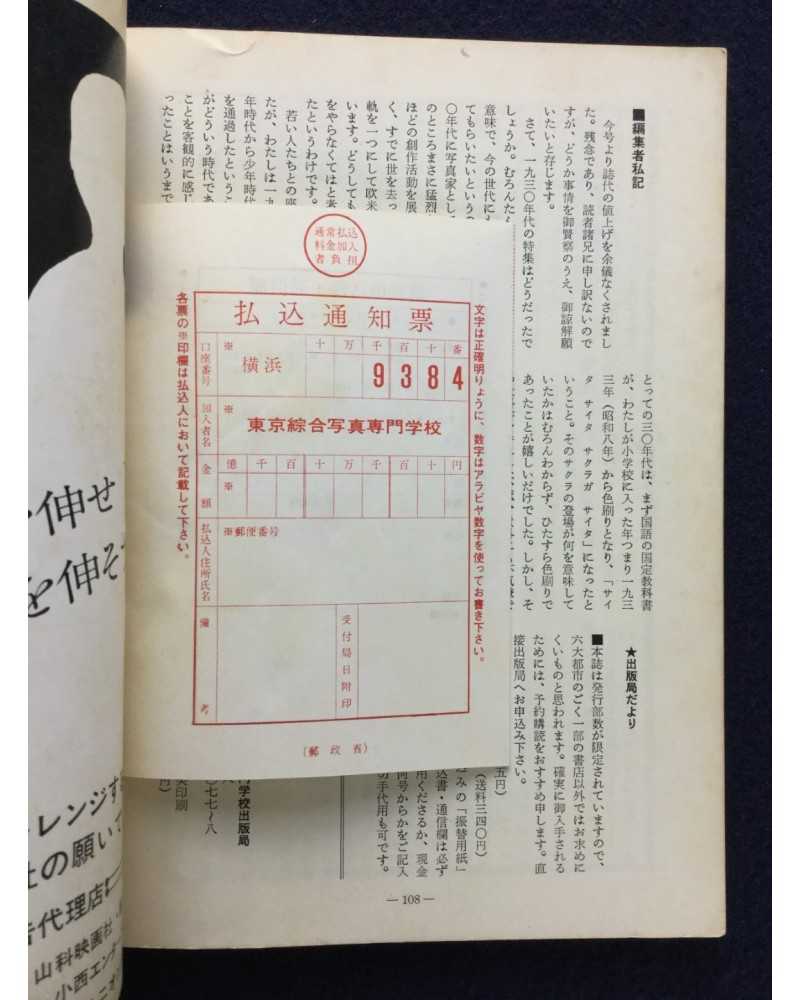 ■編集者私記
今号より誌代の値上げを余儀なくされまし
た。残念であり、読者諸兄に申し訳ないので
すが、どうか事情を御賢察のうえ、御諒解願
いたいと存じます。
さて、一九三〇年代の特集はどうだったで
しょうか。むろんたん
意味で、今の世代に
てもらいたいという
〇年代に写真家とし
のところまさに猛烈
ほどの創作活動を展
く、すでに世を去っ
軌を一つにして欧米
います。どうしても
をやらなくてはと考
たというわけです。
若い人たちとの座
たが、わたしは一九
年時代から少年時代
を通過したというこ
がどういう時代であ
ことを客観的に感じ
ったことはいうまで
とっての三〇年代は、まず国語の国定教科書
が、わたしが小学校に入った年つまり一九三
三年（昭和八年）から色刷りとなり、「サイ
タ サイタ サクラガ サイタ」になったと
いうこと。そのサクラの登場が何を意味して
いたかはむろんわからず、ひたすら色刷りで
あったことが嬉しいだけでした。しかし、そ
★出版局だより
■本誌は発行部数が限定されていますので、
六大都市のごく一部の書店以外ではお求めに
くいものと思われます。確実に御入手される
ためには、予約購読をおすすめ申します。直
接出版局へお申込み下さい。
五円）
（送料三四〇円）
込みの「振替用紙」
込書・通信欄は必ず
用くださるか、現金
何号からかをご記入
の手代用も可です。
門学校出版局
）七七〜八
英印刷
円）
通常払込
料金加入
者負担
払込通知票
文字は正確明りょうに、数字はアラビヤ数字を使ってお書き下さい。
各票の※印欄は払込人において記載して下さい。
口座番号
※
横浜
十 万 千 百 十 番
9384
加入者名
※
東京綜合写真専門学校
金額
億 千 百 十 万 千 百 十 円
※
払込人住所氏名
※郵便番号
備考
受付局日附印
（郵政省）
— 108 —
伸せ
を伸そ
レンジす
の願いて
代理店
山科映画社
小西エン
ニオ